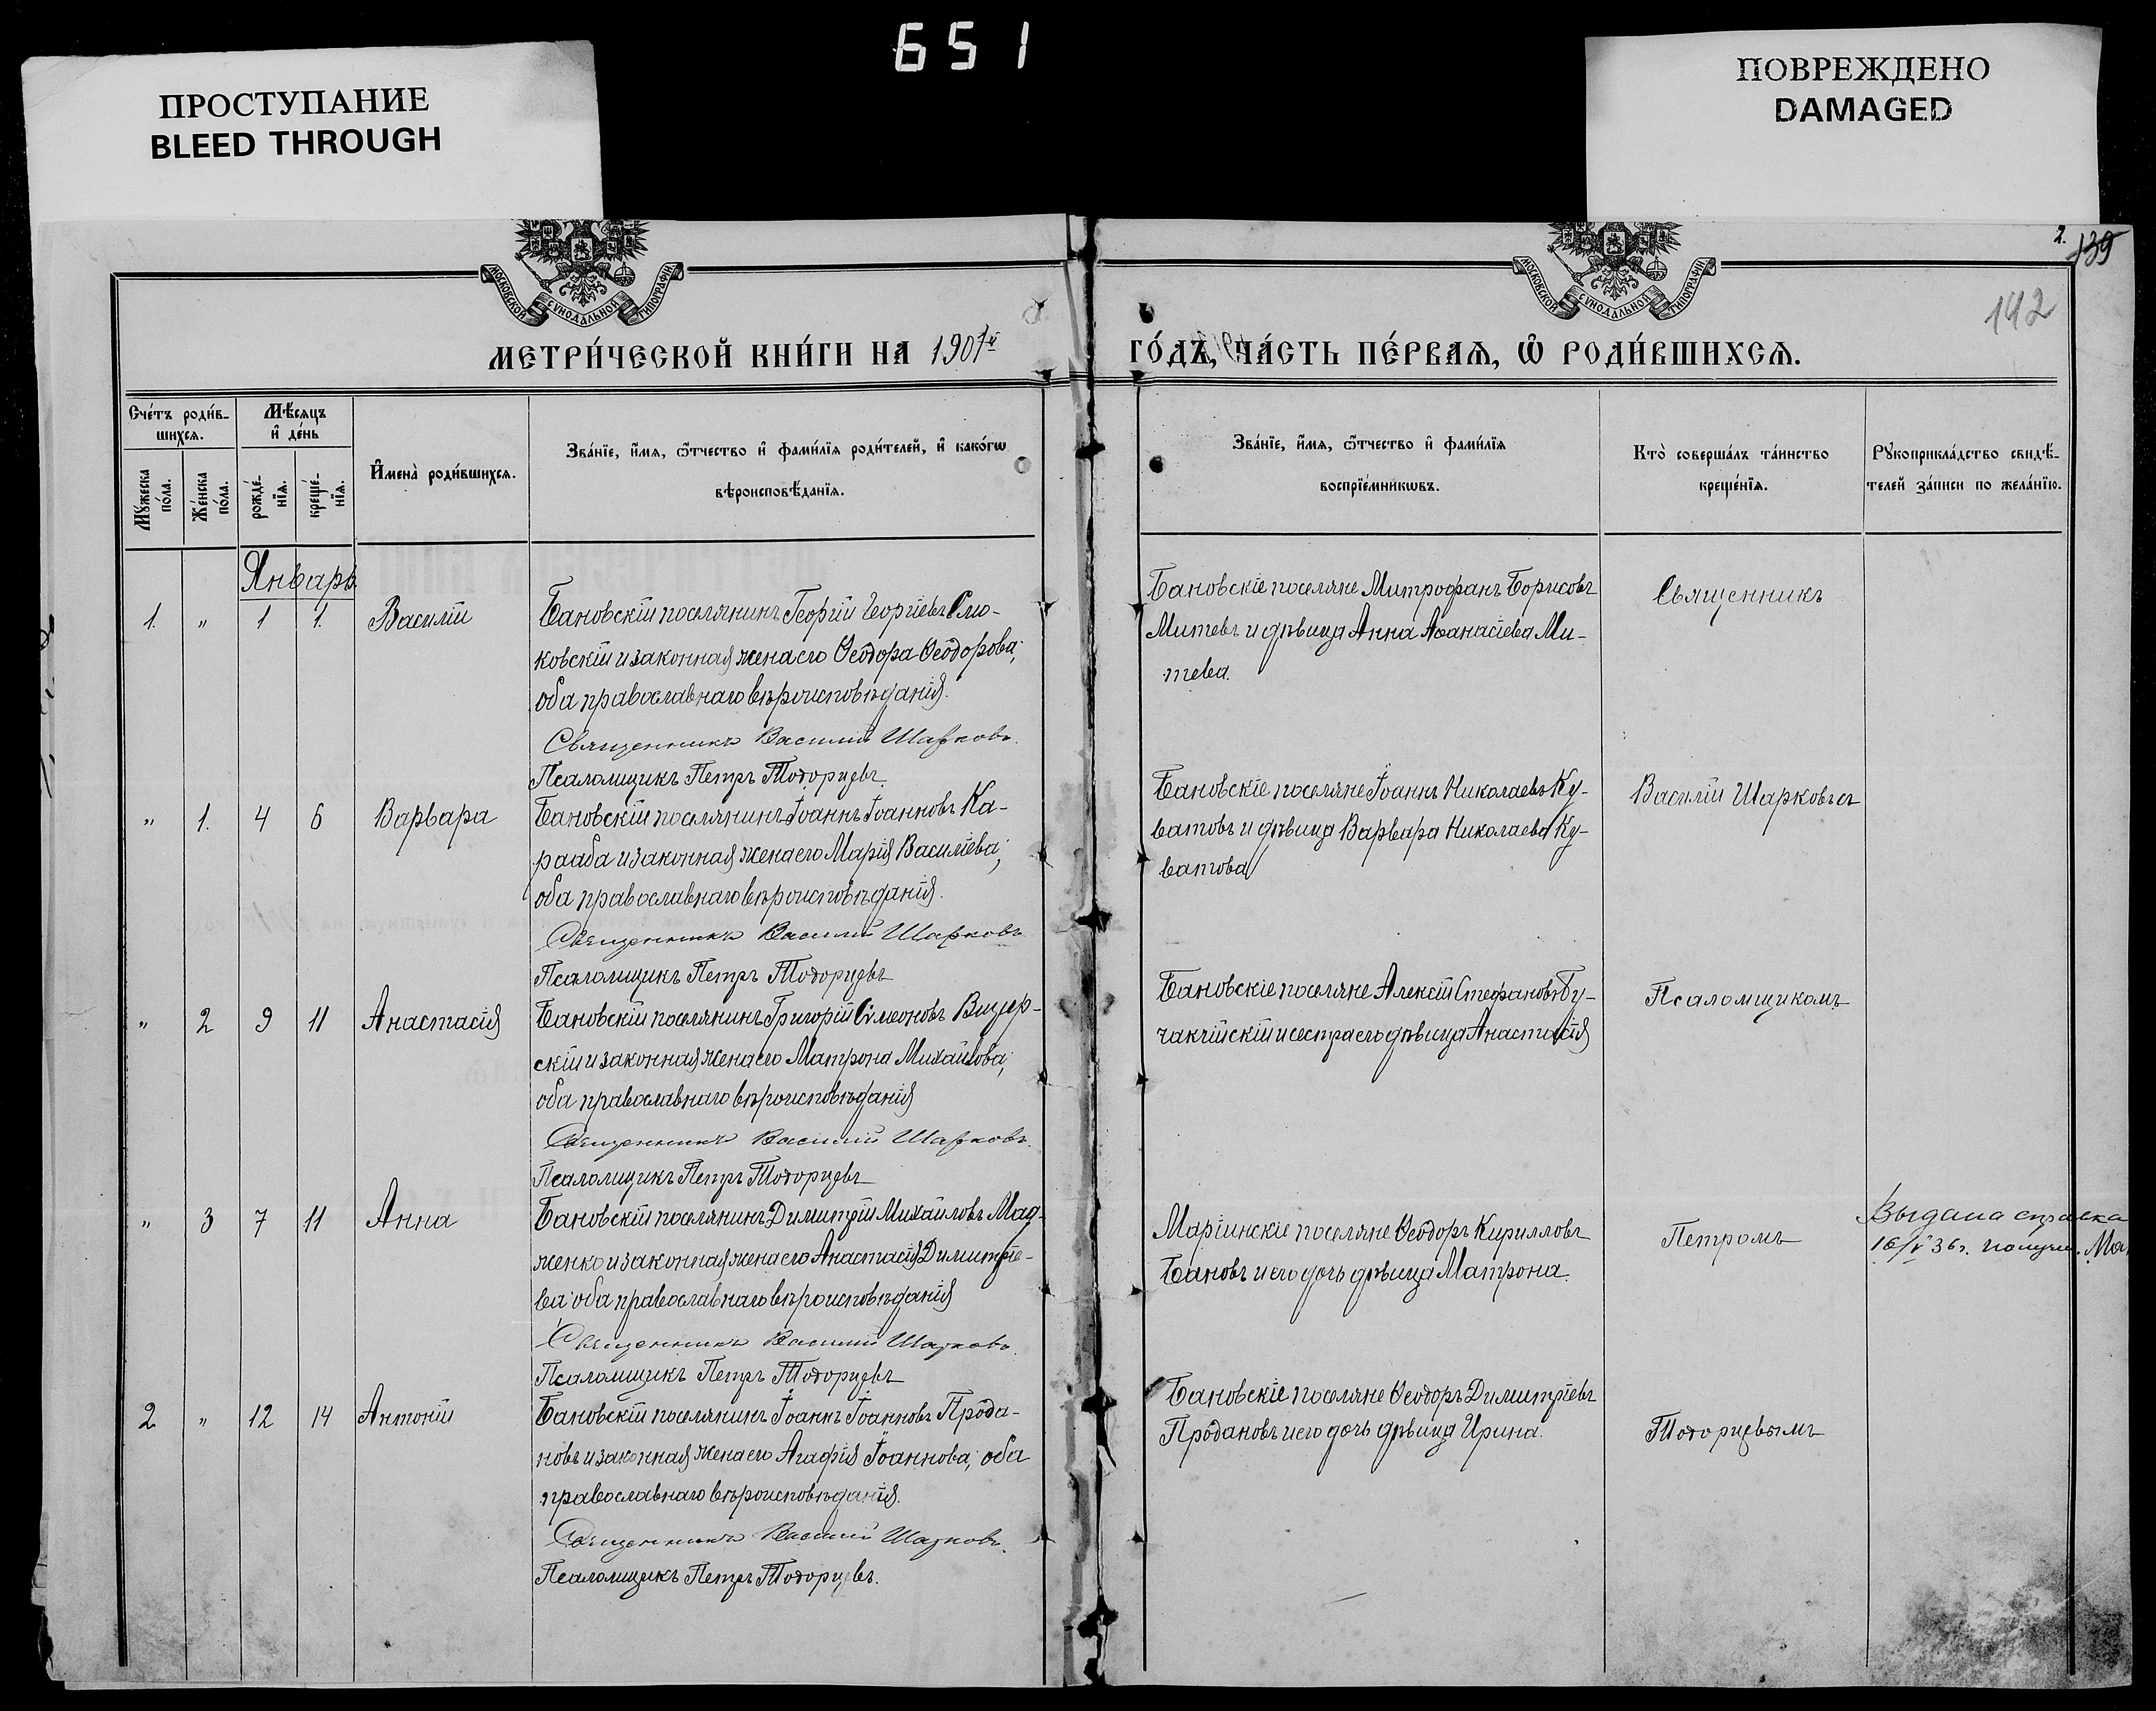 651
ПРОСТУПАНИЕ
BLEED THROUGH
ПОВРЕЖДЕНО
DAMAGED
МОСКОВСКОЙ СѴНОДАЛЬНОЙ ТИПОГРАФІИ
МОСКОВСКОЙ СѴНОДАЛЬНОЙ ТИПОГРАФІИ
2.
139
142
МЕТРИ́ЧЕСКОЙ КНИ́ГИ НА 1901й ГО́ДЪ, ЧА́СТЬ ПЕ́РВАѦ, Ѡ҆ РОДИ́ВШИХСѦ.
Сче́тъ роди́в-
шихсѧ.
Мѣ́сѧцъ
и҆ де́нь
Мꙋ́жеска
по́ла.
Же́нска
по́ла.
рожде́-
нїѧ.
креще́-
нїѧ.
И҆мена̀ роди́вшихсѧ.
Зва́нїе, и҆́мѧ, ѻ҆́тчество и҆ фами́лїѧ роди́телей, и҆ како́гѡ
вѣроисповѣ́данїѧ.
Зва́нїе, и҆́мѧ, ѻ҆́тчество и҆ фами́лїѧ
воспрїе́мникѡвъ.
Кто̀ соверша́лъ та́инство
креще́нїѧ.
Рꙋкоприкла́дство свидѣ́-
телей за́писи по жела́нїю.
Январь
1. " 1 1. Василій
Бановскій поселянинъ Георгій Георгіевъ Смо-
ковскій и законная жена его Ѳеодора Ѳеодорова;
оба православнаго вѣроисповѣданія.
Священникъ Василій Шарковъ.
Псаломщикъ Петръ Тодорцевъ.
Бановскіе поселяне Митрофанъ Борисовъ
Митевъ и дѣвица Анна Аѳанасіева Ми-
тева.
Священникъ
" 1. 4 6 Варвара
Бановскій поселянинъ Іоаннъ Іоанновъ Ка-
рааба и законная жена его Марія Василіева;
оба православнаго вѣроисповѣданія.
Священникъ Василій Шарковъ
Псаломщикъ Петръ Тодорцевъ
Бановскіе поселяне Іоаннъ Николаевъ Ку-
ватовъ и дѣвица Варвара Николаева Ку-
ватова
Василій Шарковъ съ
" 2 9 11 Анастасія
Бановскій поселянинъ Григорій Сѵмеоновъ Вицер-
скій и законная жена его Матрона Михайлова;
оба православнаго вѣроисповѣданія
Священникъ Василій Шарковъ.
Псаломщикъ Петръ Тодорцевъ
Бановскіе поселяне Алексій Стефановъ Бу-
чакчійскій и сестра его дѣвица Анастасія
Псаломщикомъ
" 3 7 11 Анна
Бановскій поселянинъ Димитрій Михайловъ Мад-
женко и законная жена его Анастасія Димитріе-
ва; оба православнаго вѣроисповѣданія
Священникъ Василій Шарковъ.
Псаломщикъ Петръ Тодорцевъ
Маріинскіе поселяне Ѳеодоръ Кирилловъ
Бановъ и его дочь дѣвица Матрона.
Петромъ
Выдана справка
16/V 36 г.
2 " 12 14 Антоній
Бановскій поселянинъ Іоаннъ Іоанновъ Прода-
новъ и законная жена его Агафія Іоаннова; оба
православнаго вѣроисповѣданія.
Священникъ Василій Шарковъ.
Псаломщикъ Петръ Тодорцевъ.
Бановскіе поселяне Ѳеодоръ Димитріевъ
Продановъ и его дочь дѣвица Ирина.
Тодорцевымъ